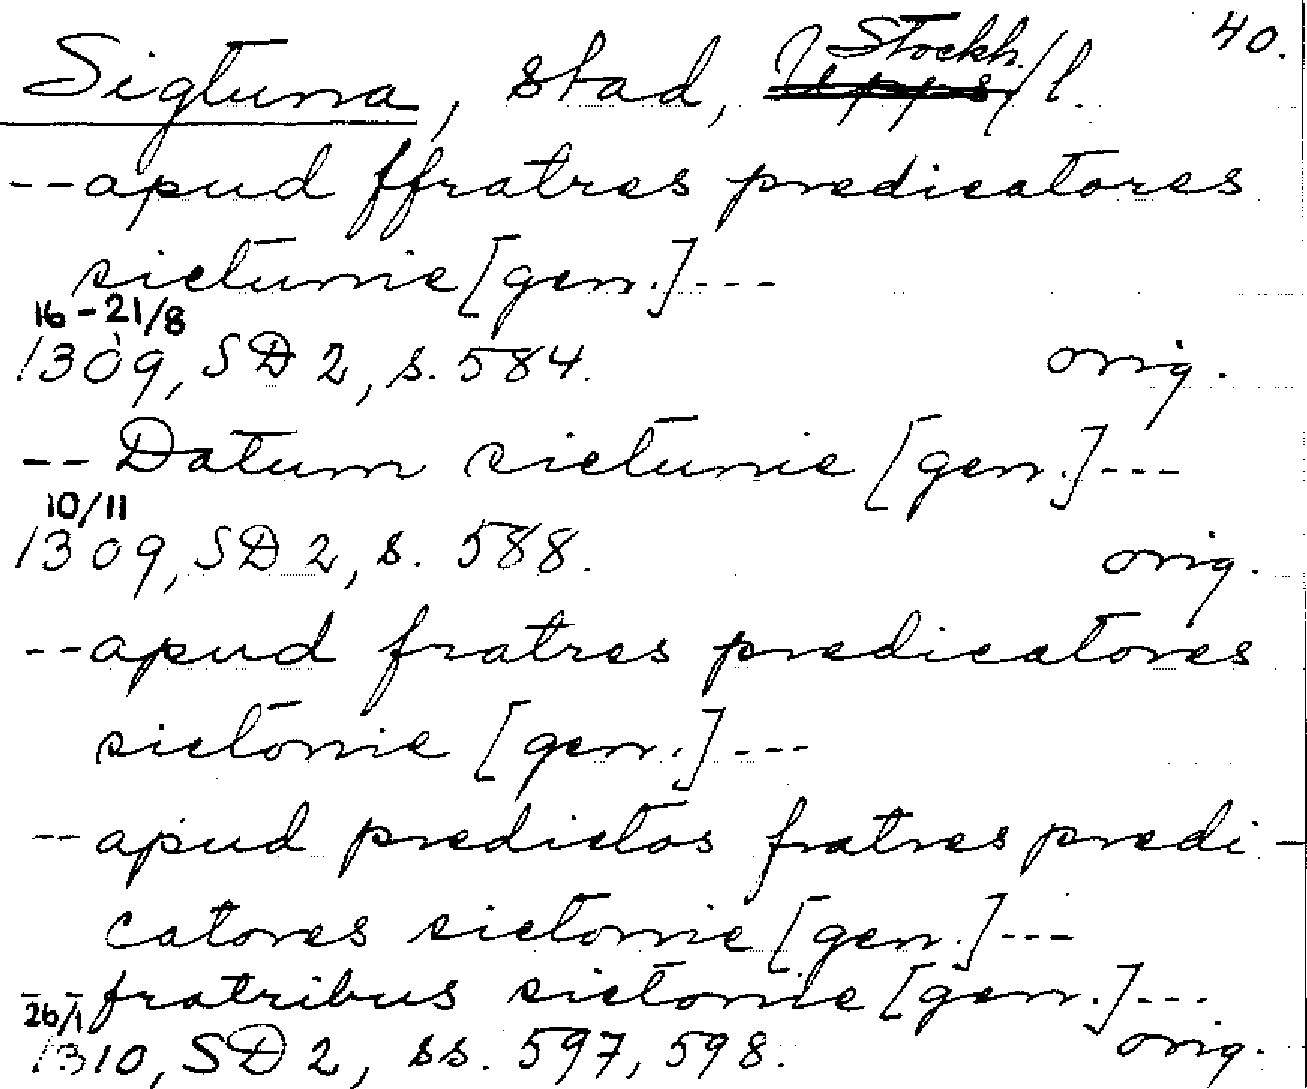 40.
Stockh.
Sigtuna, stad, Upps/l.
--apud ffratres predicatores
sictunie [gen.]---
16-21/8
1309, SD 2, s. 584. orig.
-- Datum sictunie [gen.]---
10/11
1309, SD 2, s. 588. orig.
--apud fratres predicatores
sictonie [gen.]---
--apud predictos fratres predi-
catores sictonie [gen.]---
--fratribus sictonie [gen.]---
26/1
1310, SD 2, ss. 597, 598. orig.